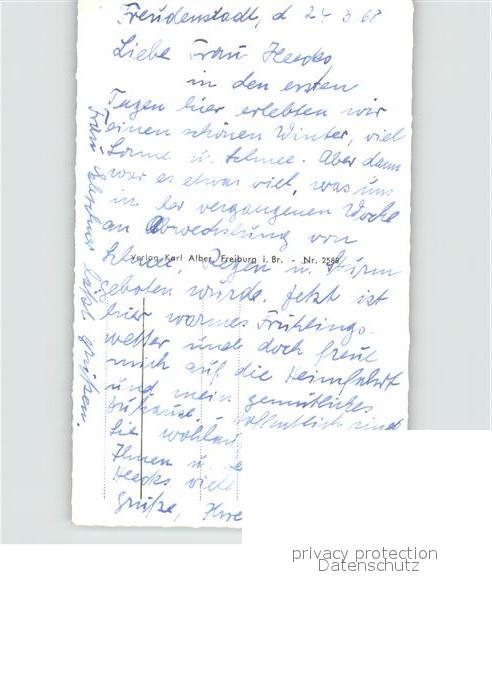 Freudenstadt, d 24 3 68
Liebe Frau Heeks,
in den ersten
Tagen hier erlebten wir
einen schönen Winter, viel
Sonne u. Schnee. Aber dann
war es etwas viel, was uns
in der vergangenen Woche
an Abwechslung von
Schnee, Regen u. Sturm
geboten wurde. Jetzt ist
hier warmes Frühlings-
wetter und doch freue
mich auf die Heimfahrt
und mein gemütliches
zuhause. Hoffentlich sind
Sie wohlauf
Ihnen u.
Heeks viele
Grüße, Ihre
Frau läßt grüßen.
Verlag Karl Alber, Freiburg i. Br. - Nr. 2588
privacy protection
Datenschutz